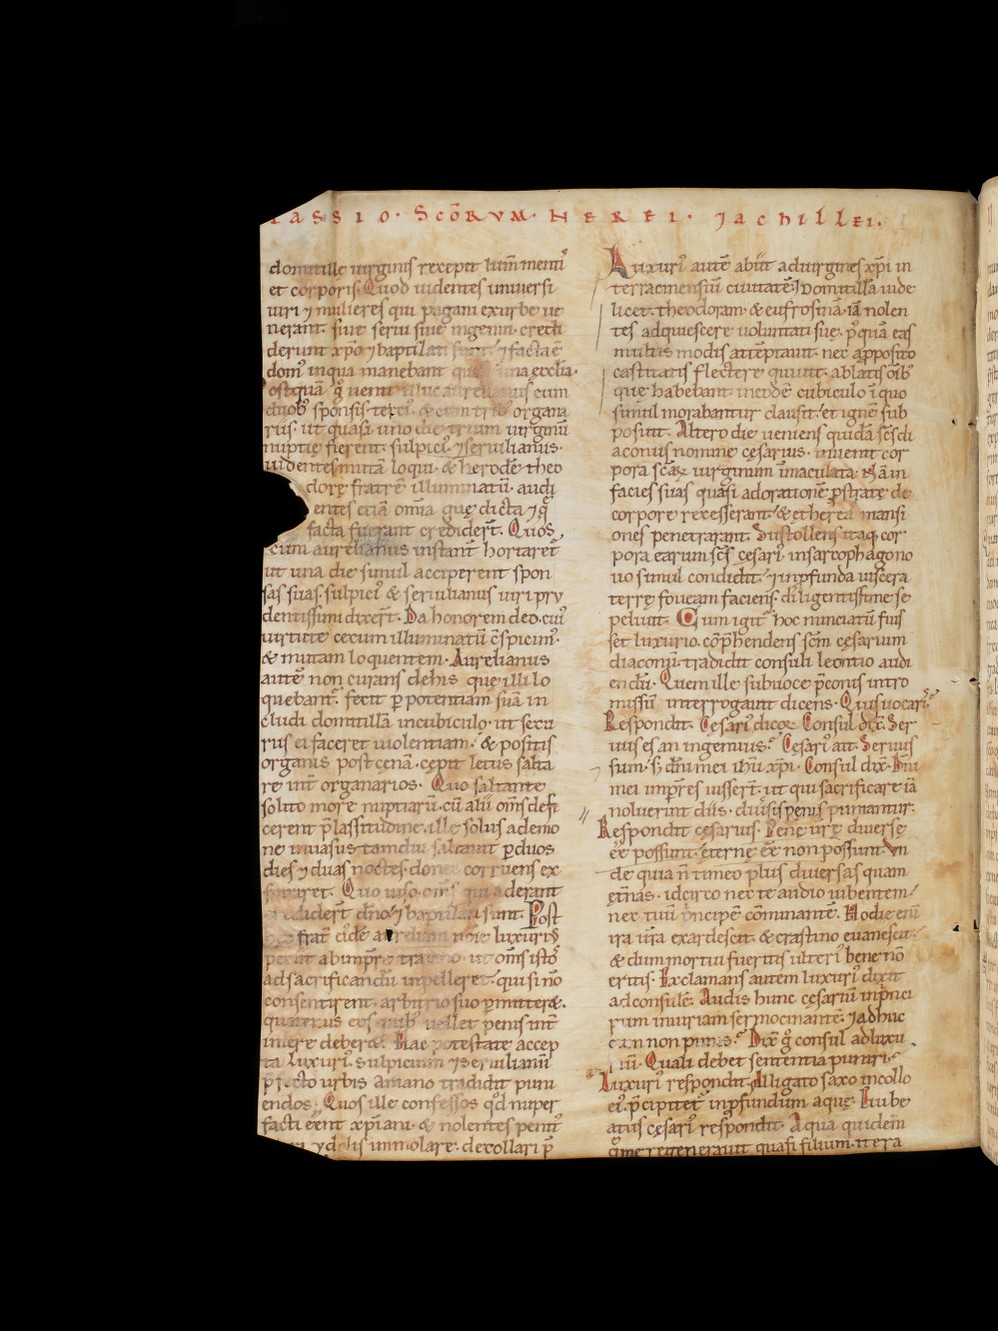 PASSIO· SCŌRVM· NEREI· ⁊ achillei.
domitille uirginis recepit lum̄ mentiꝰ
et corporis. Quod uidentes uniuersi
uiri ⁊ mulieres qui pagani ex urbe ue
nerant. siue serui siue ingenui. credi
derunt xp̄o ⁊ baptizati sunt. ⁊ facta ē
domꝰ in qua manebant quasi una ecclīa.
ostquā g̊ uenit illuc aurelianus cum
duob; sponsis. & cum trib; organa
riis. ut quasi uno die trium uirginū
nuptię fierent. sulpiciꝰ ⁊ seruilianus.
uidentes mutā loqui. & herodē theo
dorę fratrē illuminatū. audi
entes etiā omīa quę dicta ⁊ q̄
facta fuerant crediderт̄. Quos
cum aurelianus instant̄ hortaret̄
ut una die simul acciperent spon
sas suas. sulpiciꝰ & seruilianus uiri pru
dentissimi dixert̄. Da honorem deo. cuiꝰ
uirtute cecum illuminatū c̄spicimꝰ.
& mutam loquentem. Aurelianus
autē non curans de his que illi lo
quebant̄. fecit p̲ potentiam suā in
cludi domitillā in cubiculo. ut secu
rus ei faceret uiolentiam. & positis
organis post cęnā. cępit letus salta
re int̄ organarios. Quo saltante
solito more nuptiarū. cū alii om̄s defi
cerent p̄ lassitudine. ille solus a demo
ne inuasus tamdiu saltauit p̲ duos
dies ⁊ duas noctes. donec corruens ex
spiraret. Quo uiso om̄s qui aderant
crediderт̄ dn̄o ⁊ baptizati sunt. Post
frat̄ eiꝰdē aureliani nōie luxuriꝰ
petiit ab imp̄re traiano. ut om̄s istos
ad sacrificandū impelleret. qui si nō
consentirent. arbitrio suo p̲mitteret.
quatenus eos quib; uellet penis int̄
imere deberet. Hac potestate accep
ta luxuriꝰ. sulpicium ⁊ seruilianū
p̄fecto urbis aniano tradidit puni
endos. Quos ille confessos qd̄ nuper
facti eēnt xp̄iani. & nolentes penitꝰ
ydolis immolare. decollari p̄
Luxuriꝰ autē abiit ad uirgines xp̄i in
terracinensiū ciuitatē. Domitillā uide
licet. theodoram. & eufrosinā. iā nolen
tes adquiescere uoluntati suę. p̲quā eas
multis modis attēptauit. nec a p̲posito
castitatis flectere quiuit. ablatis oīb;
que habebant. in eodē cubiculo ī quo
simul morabantur clausit. et ignē sub
posuit. Altero die ueniens quidā sc̄s di
aconus nomine cęsarius. inuenit cor
pora scāꝝ uirginum īmaculata. Nā in
facies suas quasi adorationē p̲stratę de
corpore recesserant. & etherea mansi
ones penetrarant. Sustollens itaq; cor
pora earum sc̄s cęsariꝰ. in sarcophago no
uo simul condidit. ⁊ in p̲funda uiscera
terrę foueam faciens. diligentissime se
peliuit. Cum igit̄ hoc nunciatū fuis
set luxurio. cōp̄hendens sc̄m cęsarium
diaconū. tradidit consuli leontio audi
endū. Quem ille sub uoce p̄conis intro
missū interrogauit dicens. Quis uocarꝰ.
Respondit. Cęsariꝰ dicor. Consul dix̄. Ser
uus es an ingenuus. Cęsariꝰ ait. Seruus
sum. s; dn̄i mei ih̄u xp̄i. Consul dix̄. Dn̄i
mei imp̄res iussert̄. ut qui sacrificare iā
noluerint diis. diuisis penis puniantur.
Respondit cęsarius. Penę urę diuersę
eē possunt. ęternę eē non possunt. Vn
de quia n̄ timeo plus diuersas quam
ęt̄nas. idcirco nec te audio iubentem
nec tuū principē cōminantē. Hodie enī
ira ur̄a exardescit. & crastino euanescit.
& dum mortui fueritis ulteriꝰ bene nō
eritis. Exclamans autem luxuriꝰ dixit
ad consulē. Audis hunc cęsariū in p̄nci
pum iniuriam sermocinantē. ⁊ adhuc
eum non punis. Dix̄ g̊ consul ad luxu
riū. Quali debet sententia puniri.
Luxuriꝰ respondit. Alligato saxo in collo
eiꝰ. p̄cipitet̄ in p̲fundum aquę. Iu be
atus cęsariꝰ respondit. Aqua quidem
que me regenerauit quasi filium. itera